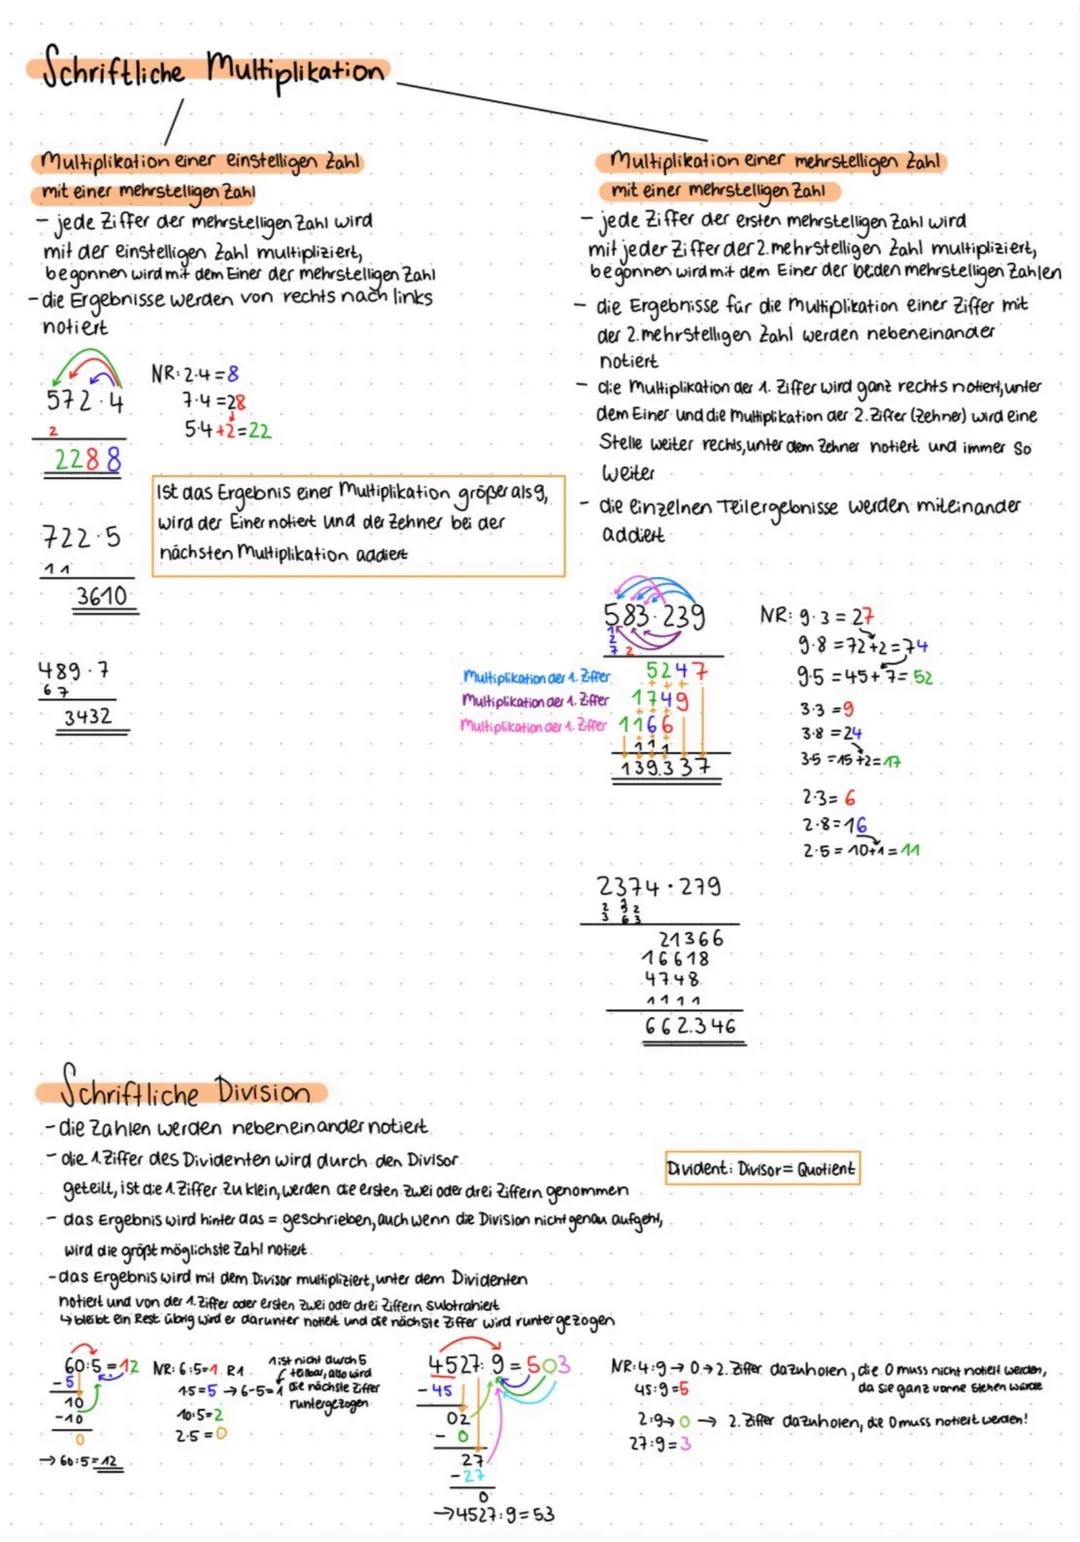 Schriftliche Multiplikation
Multiplikation einer einstelligen Zahl
mit einer mehrstelligen Zahl
- jede Ziffer der mehrstelligen Zahl wird
mit der einstelligen Zahl multipliziert,
begonnen wird mit dem Einer der mehrstelligen Zahl
- die Ergebnisse werden von rechts nach links
notiert
572·4
2
2288
NR: 2·4=8
7·4=28
5·4+2=22
Ist das Ergebnis einer Multiplikation größer als 9,
wird der Einer notiert und der Zehner bei der
nächsten Multiplikation addiert
722·5
11
3610
489·7
67
3432
Multiplikation einer mehrstelligen Zahl
mit einer mehrstelligen Zahl
- jede Ziffer der ersten mehrstelligen Zahl wird
mit jeder Ziffer der 2. mehrstelligen Zahl multipliziert,
begonnen wird mit dem Einer der beiden mehrstelligen Zahlen
- die Ergebnisse für die Multiplikation einer Ziffer mit
der 2. mehrstelligen Zahl werden nebeneinander
notiert
- die Multiplikation der 1. Ziffer wird ganz rechts notiert, unter
dem Einer und die Multiplikation der 2. Ziffer (Zehner) wird eine
Stelle weiter rechts, unter dem Zehner notiert und immer so
weiter
- die einzelnen Teilergebnisse werden miteinander
addiert
583·239
1
2
7 2
Multiplikation der 1. Ziffer 5247
Multiplikation der 1. Ziffer 1749
Multiplikation der 1. Ziffer 1166
111
139.337
NR: 9·3=27
9·8=72+2=74
9·5=45+7=52
3·3=9
3·8=24
3·5=15+2=17
2·3=6
2·8=16
2·5=10+1=11
2374·279
2 3 2
3 6 3
21366
16618
4748
1111
662.346
Schriftliche Division
- die Zahlen werden nebeneinander notiert
- die 1. Ziffer des Dividenten wird durch den Divisor
geteilt, ist die 1. Ziffer zu klein, werden die ersten zwei oder drei Ziffern genommen
Divident: Divisor= Quotient
- das Ergebnis wird hinter das = geschrieben, auch wenn die Division nicht genau aufgeht,
wird die größt möglichste Zahl notiert
- das Ergebnis wird mit dem Divisor multipliziert, unter dem Dividenten
notiert und von der 1. Ziffer oder ersten zwei oder drei Ziffern subtrahiert
↳ bleibt ein Rest übrig wird er darunter notiert und die nächste Ziffer wird runtergezogen
60:5=12
-5
10
-10
0
→ 60:5=12
NR: 6:5=1 R1
1·5=5 → 6-5=1
10:5=2
2·5=0
1 ist nicht durch 5
teilbar, also wird
die nächste Ziffer
runtergezogen
4527:9=503
-45
02
- 0
27
-27
0
→4527:9=53
NR: 4:9→0→2. Ziffer dazuholen, die 0 muss nicht notiert werden,
da sie ganz vorne stehen würde
45:9=5
2:9→0→ 2. Ziffer dazuholen, die 0 muss notiert werden!
27:9=3